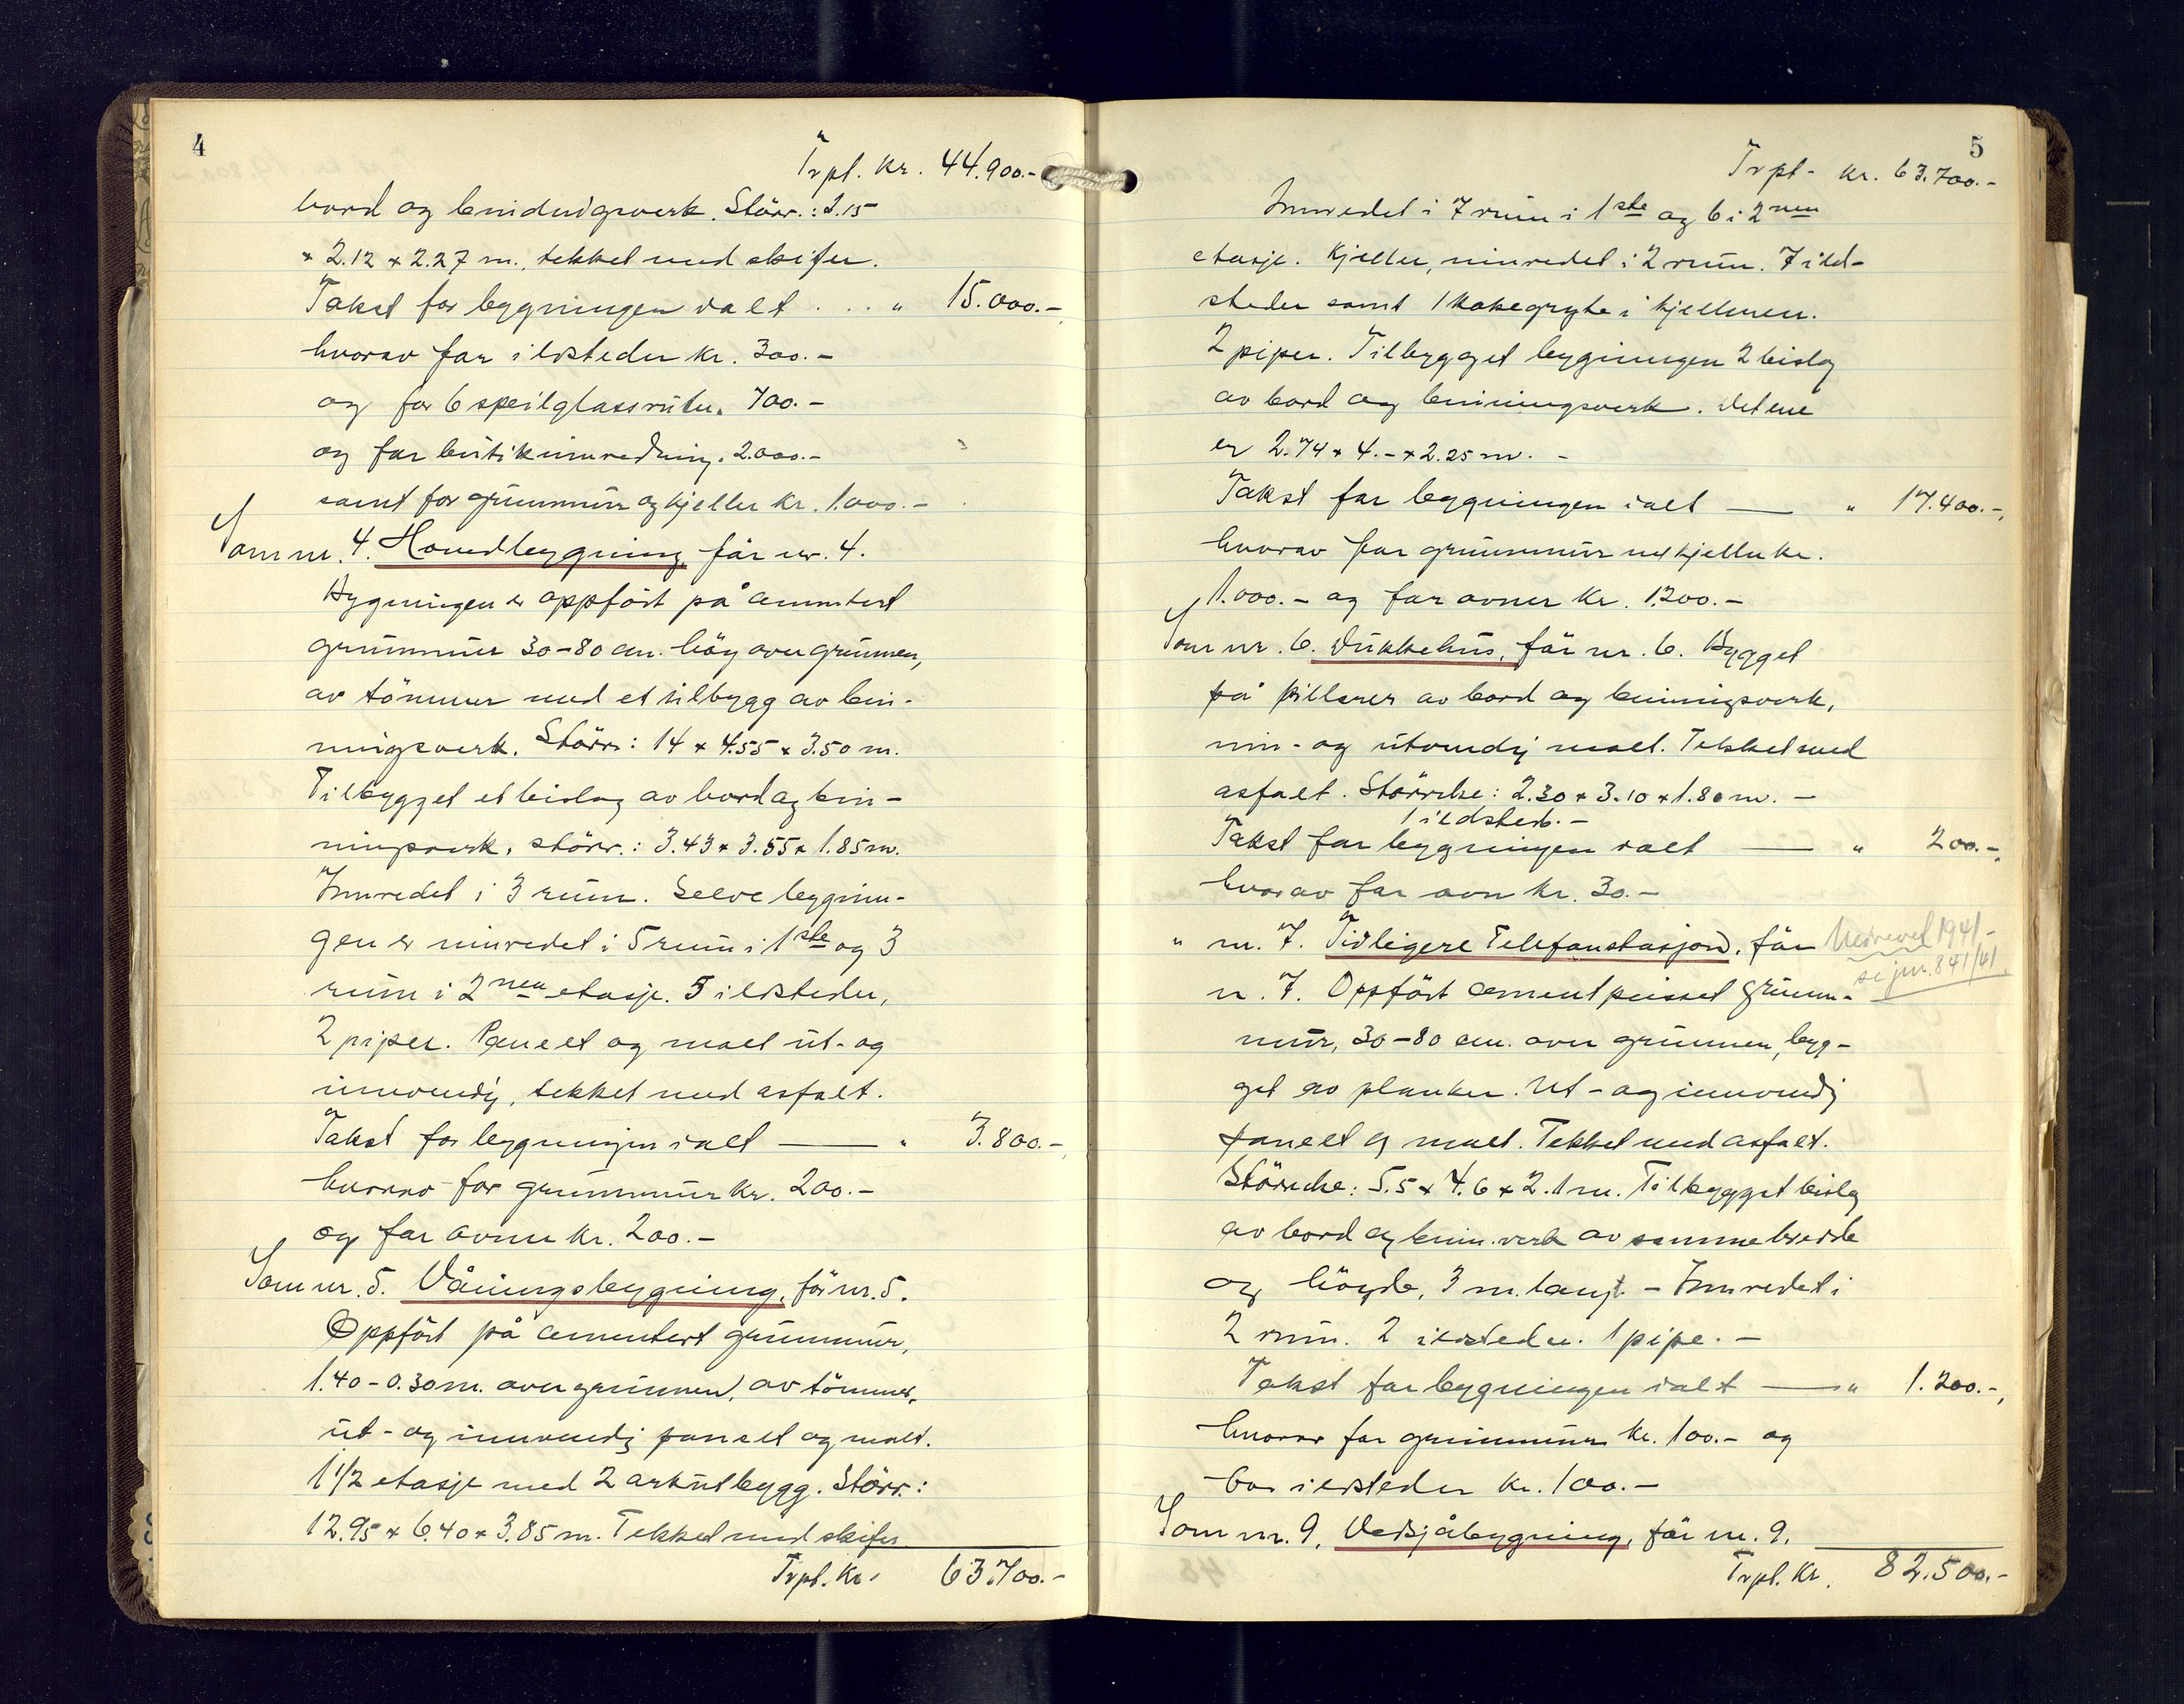 4
Trpt. kr. 44.900.-
bord og bindingsverk. Störr.: 2.15
x 2.12 x 2.27 m., tekket med skifer.
Takst for bygningen ialt . . . " 15.000.-
hvorav for ildsteder kr. 300.-
og for 6 speilglassruter " 700.-
og for butikinnredning " 2.000.-
samt for grunnmur og kjeller kr. 1.000.-
Som nr. 4. Hovedbygning, får nr. 4.
Bygningen er oppfört på cementert
grunnmur 30-80 cm. höy over grunnen,
av tömmer med et tilbygg av bin-
ningsverk. Störr: 14 x 4.55 x 3.50 m.
Tilbygget et bislag av bord og bin-
ningsverk, störr.: 3.43 x 3.55 x 1.85 m.
Innredet i 3 rum. Selve bygnin-
gen er innredet i 5 rum i 1ste og 3
rum i 2nen etasje. 5 ildsteder,
2 piper. Panelt og malt ut- og
innvendig, tekket med asfalt.
Takst for bygningen ialt — " 3.800.-
hvorav for grunnmur kr. 200.-
og for ovner kr. 200.-
Som nr. 5. Våningsbygning, får nr. 5.
Oppfört på cementert grunnmur,
1.40-0.30 m. over grunnen, av tömmer,
ut- og innvendig panelt og malt.
1 1/2 etasje med 2 arkutbygg. Störr.:
12.95 x 6.40 x 3.85 m. Tekket med skifer
Trpt. Kr. 63.700.-
5
Trpt- kr. 63.700.-
Innredet i 7 rum i 1ste og 6 i 2nen
etasje. Kjeller, innredet i 2 rum. 7 ild-
steder samt 1 kokegryte i kjelleren.
2 piper. Tilbygget bygningen 2 bislag
av bord og binningsverk. Det ene
er 2.74 x 4.- x 2.25 m. -
Takst for bygningen ialt — " 17.400.-,
hvorav for grunnmur m/kjeller kr.
1.000.- og for ovner kr. 1200.-
Som nr. 6. Dukkehus, får nr. 6. Bygget
på pillarer av bord og binningsverk,
inn- og utvendig malt. Tekket med
asfalt. Störrelse: 2.30 x 3.10 x 1.80 m. -
1 ildsted. -
Takst for bygningen ialt — " 200.-,
hvorav for ovn kr. 30.-
" nr. 7. Tidligere Telefonstasjon, får Nedrevet 1941-
se jnr. 841/41.
nr. 7. Oppfört cementpusset grunn-
mur, 30-80 cm. over grunnen, byg-
get av planker. Ut- og innvendig
panelt og malt. Tekket med asfalt.
Störrelse: 5.5 x 4.6 x 2.1 m. Tilbygget bislag
av bord og binn.verk av samme bredde
og höyde, 3 m. langt. - Innredet i
2 rum. 2 ildsteder. 1 pipe. -
Takst for bygningen ialt — " 1.200.-,
hvorav for grunnmur kr. 100.- og
for ildsteder kr. 100.-
Som nr. 9. Vedsjåbygning, får nr. 9.
Trpt. Kr. 82.500.-